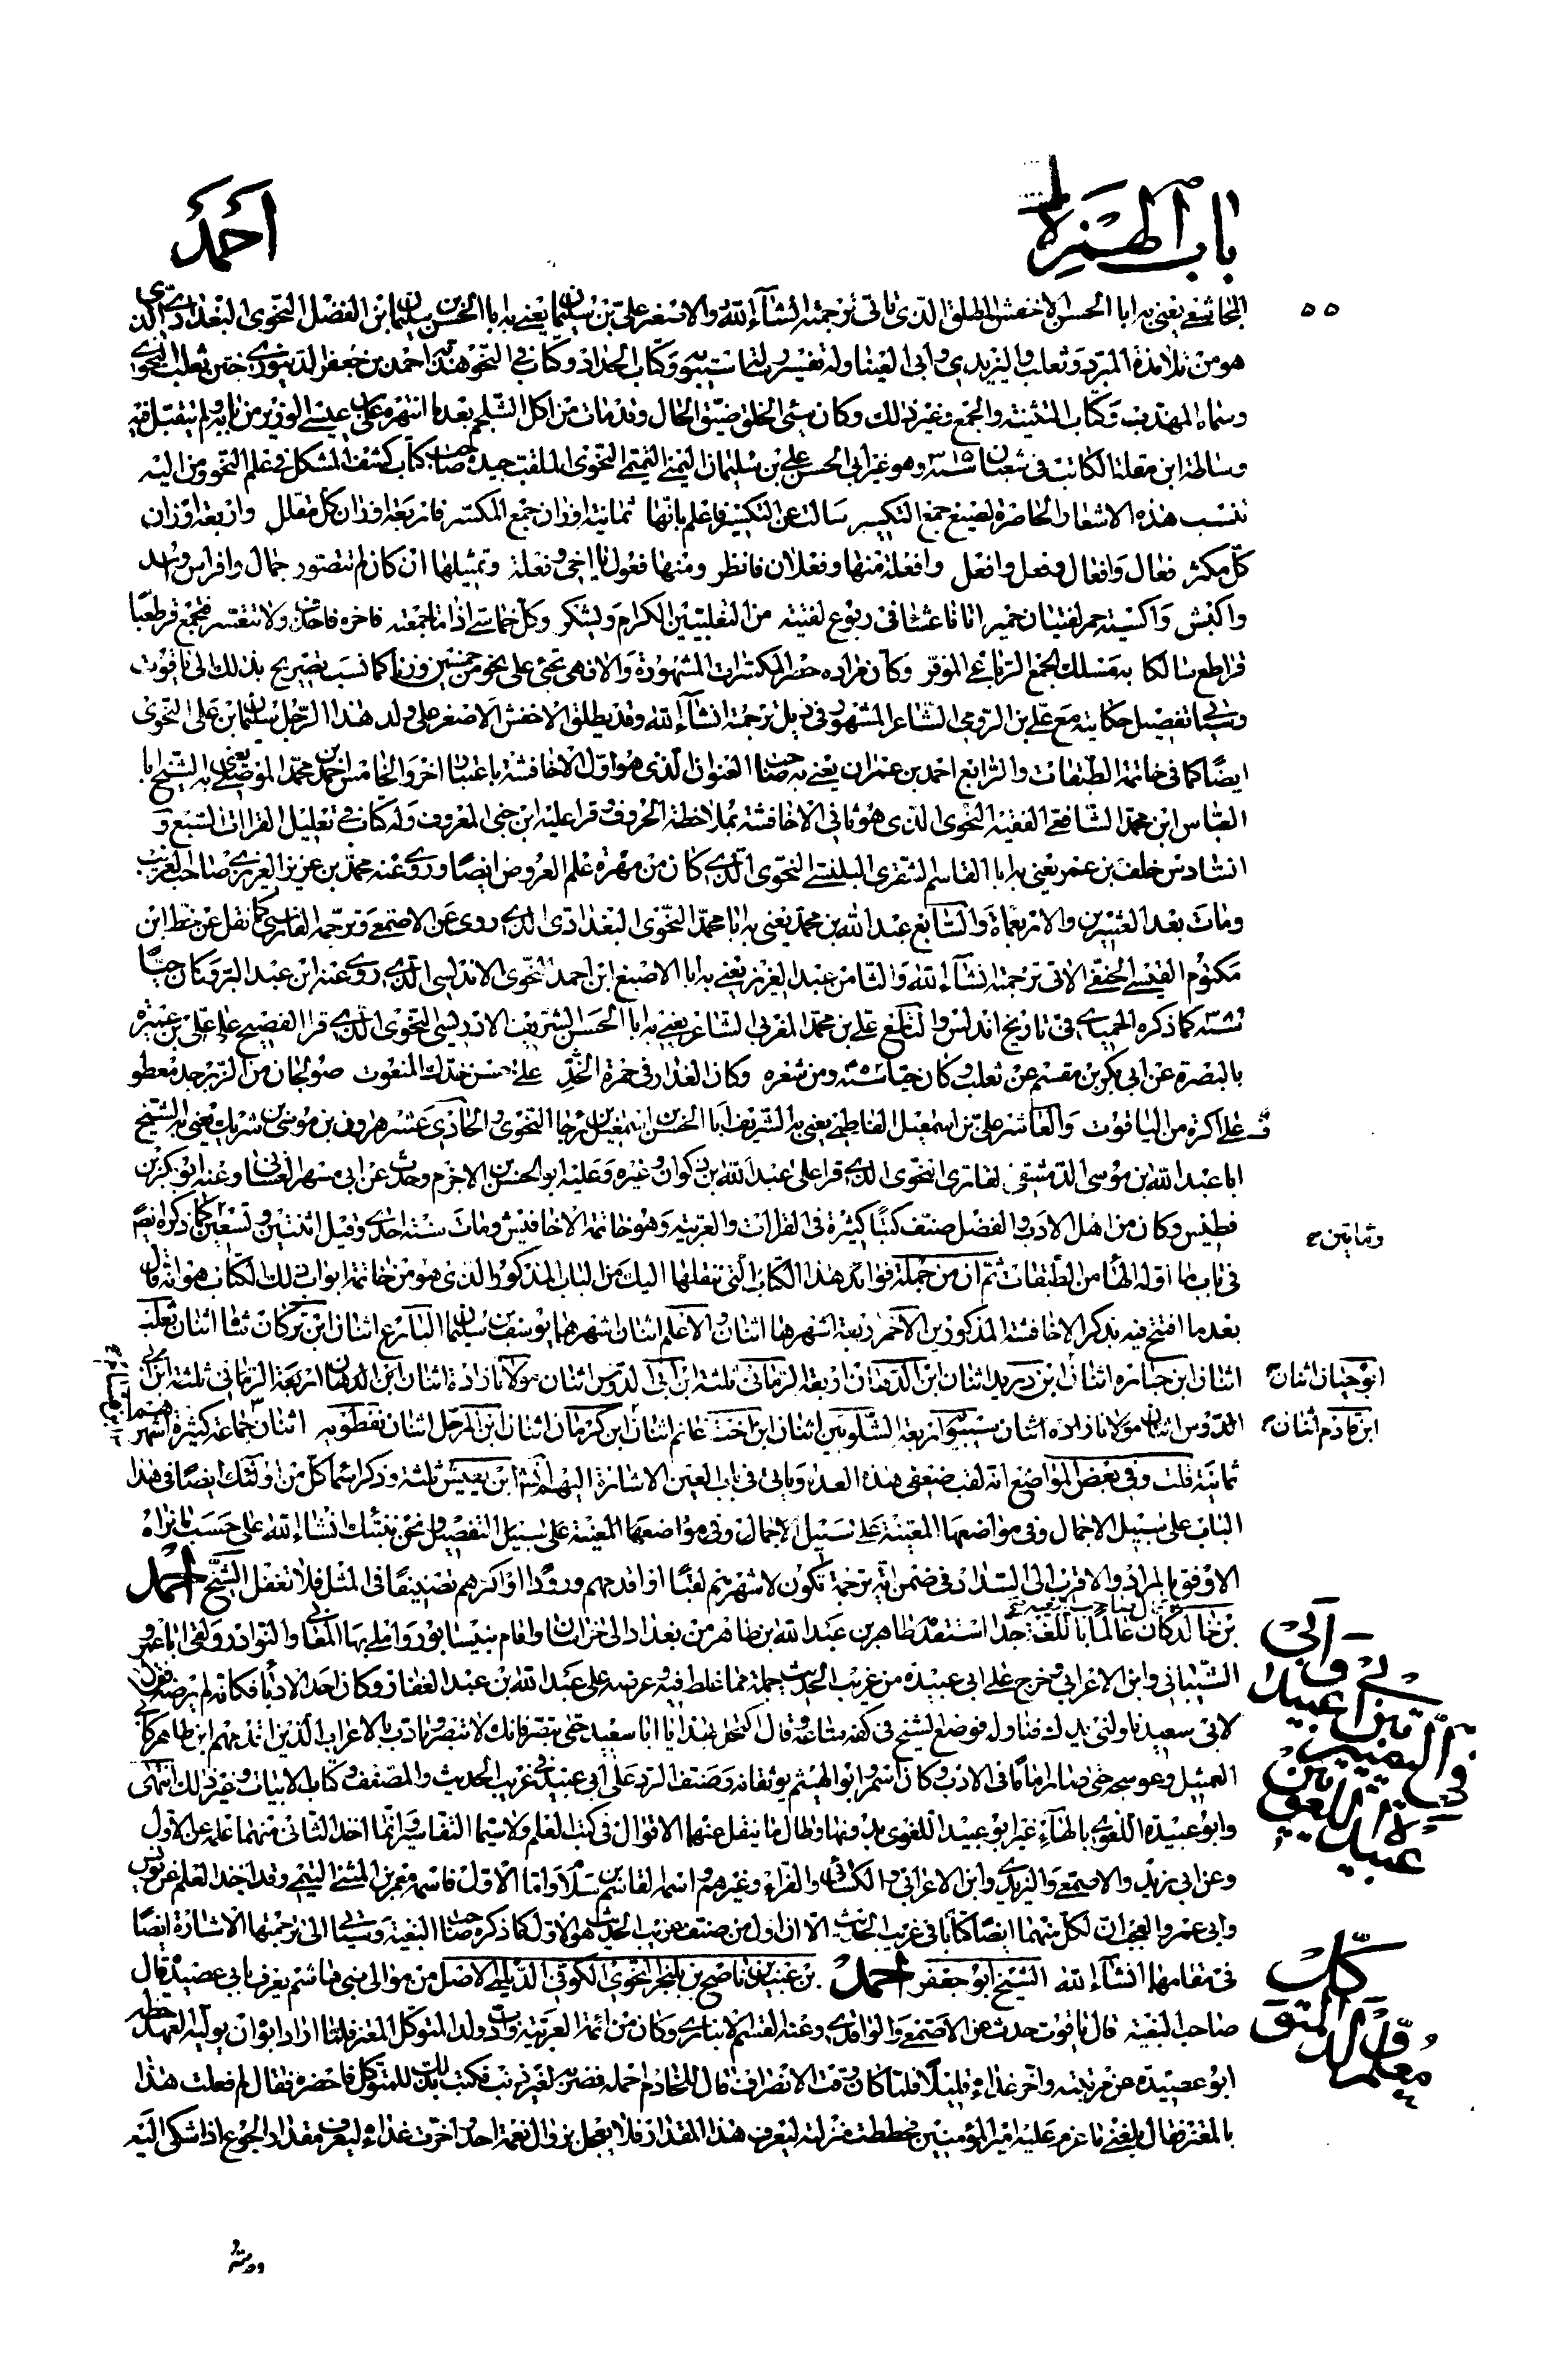 باب الهمزة
احمد
٥٥
المجاشعي يعني به ابا الحسن الاخفش المطلق الذي ياتي ترجمته انشاء الله والاصغر علي بن سليمان يعني به ابا الحسن بن سليمان بن الفضل النحوي البغدادي الذي
هو من تلامذة المبرد وثعلب واليزيدي وابي العيناء وله تفسير رسالة سيبويه وكتاب الحداد وكتاب في النحو هذبه احمد بن جعفر الدينوري ختن ثعلب النحوي
وسماه المهذب وكتاب التثنية والجمع وغير ذلك وكان سيئ الخلق ضيق الحال وقد مات من اكل الشلجم بعد ما انتهره علي بن عيسى الوزير من بابه ولم يتقبل فيه
وساطة ابن مقلة الكاتب في شعبان وهو غير ابي الحسن علي بن سليمان اليمني التميمي النحوي الملقب حيدة صاحب كتاب كشف المشكل في علم النحو ومن اليه
تنسب هذه الاشعار الحاضرة لصيغ جمع التكسير سالت عن التكسير فاعلم بانها ثمانية اوزان جمع المكسر فاربعة اوزان كل مقلل واربعة اوزان
كل مكثر فعال وافعال وفعل وافعل وافعلة منها وفعلان فانظر ومنها فعول يا اخي وفعلة وتمثيلها ان كان لم تتصور جمال وافراس واسد
واكبش واكسية حمر لفتيان حمير اناقا عشا في ربوع لفتية من التغلبيين الكرام ويشكر وكل خماسي اذا ما جمعته فاخره فاحذف ولا تتفسر فتجمع قرطعبا
قراطع سالكا به مسلك الجمع الرباعي الموقر وكان مراده حصر المكسرات المشهورة والا فهي تجيء على نحو من خمسين وزنا كما نسب تصريح بذلك الى ياقوت
وسياتي تفصيل حكايته مع علي بن الرومي الشاعر المشهور في ذيل ترجمته انشاء الله وقد يطلق الاخفش الاصغر على ولد هذا الرجل سليمان بن علي النحوي
ايضا كما في خاتمة الطبقات والرابع احمد بن عمران يعني به صاحب العنوان الذي هو اول الاخافشة باعتبار اخر والخامس احمد بن محمد الموصلي يعني به الشيخ ابا
العباس ابن محمد الشافعي الفقيه النحوي الذي هو ثاني الاخافشة بملاحظة الحروف قرا عليه ابن جني المعروف وله كتاب في تعليل القراات السبع و
السادس خلف بن عمر يعني به ابا القاسم الشقري البلنسي النحوي الذي كان من مهرة علم العروض ايضا وروى عنه محمد بن عزيز العزيزي صاحب الغريب
ومات بعد العشرين والاربعمائة والسابع عبد الله بن محمد يعني به ابا محمد النحوي البغدادي الذي روى عن الاصمعي وترجمه الفارسي كما نقل عن خط ابن
مكتوم القيسي الحنفي الاتي ترجمته انشاء الله والثامن عبد العزيز يعني به ابا الاصبغ ابن احمد النحوي الاندلسي الذي روى عنه ابن عبد البر وكان حيا
كما ذكره الحميدي في تاريخ اندلس والتاسع علي بن محمد المغربي الشاعر يعني به ابا الحسن الشريف الادريسي النحوي الذي قرا الفصيح على علي بن عميرة
بالبصرة عن ابي بكر بن مقسم عن ثعلب وكان حيا ومن شعره وكان العذار في حمرة الخد على حسن خدك المنعوت صولجان من الزبرجد معطو
ف على اكرة من الياقوت والعاشر علي بن اسمعيل الفاطمي يعني به الشريف ابا الحسن بن اسمعيل بن رجا النحوي والحادي عشر هارون بن موسى بن شريك يعني به الشيخ
ابا عبد الله بن موسى الدمشقي القاري النحوي الذي قرا على عبد الله بن ذكوان وغيره وعليه ابو الحسن بن الاخرم وحدث عن ابي مسهر الغساني وعنه ابو بكر بن
فطيس وكان من اهل الادب والفضل صنف كتبا كثيرة في القراات والعربية وهو خاتمة الاخافيش ومات سنة احدى وقيل اثنتين وتسعين كما ذكره ايضا
وثمانين
في باب ما اوله الهاء من الطبقات ثم ان من جملة فوائد هذا الكتاب التي ننقلها اليك من الباب المذكور الذي هو من خاتمة ابواب ذلك الكتاب هو انه قال
بعد ما افتح فيه بذكر الاخافشة المذكورين الاحمر اربعة اشهرها اثنان والاعلم اثنان اشهرهما يوسف بن سليمان البارع اثنان ابن بركان شا اثنان ثعلب
اثنان ابن جبارة اثنان ابن دريد اثنان ابن الدهان اربعة الرماني ثلثة ابن ابي الدوس اثنان مولانا زادة اثنان ابن الدهان اربعة الرماني ثلثة ابن ابي
ابو حيان اثنان
الدوس اثنان مولانا زاده اثنان سيبويه اربعة الشلوبين اثنان ابن اخت غانم اثنان ابن كرمان اثنان ابن المرحل اثنان نفطويه اثنان جماعة كثيرة اشهر
ابن خادم اثنان
ثمانية قلت وفي بعض المواضع انه لقب ضعفي هذه العدة وياتي في باب العين الاشارة اليهم انشا ابن يعيش ثلثة وذكر اسما كل من اولئك ايضا في هذا
الباب على سبيل الاجمال وفي مواضعها المعينة على سبيل الاجمال وفي مواضعها المعينة على سبيل التفصيل ونحن ننبئك انشاء الله على حسب ما نراه
الاوفق بالمراد والاقرب الى السداد في ضمن اية ترجمة تكون لاشهرهم لقبا او اقدمهم ورودا او اكثرهم تصنيفا في المثل فلا تغفل الشيخ احمد
بن خالد كان عالما باللغة جدا استقدمه طاهر بن عبد الله بن طاهر من بغداد الى خراسان واقام بنيسابور واملى بها المعاني والنوادر ولقى ابا عمرو
الشيباني وابن الاعرابي وخرج على ابي عبيدة من غريب الحديث جملة مما غلط فيه وعرضه على عبد الله بن عبد الغفار وكان احد الادبا فكانه لم يرضه فقال
لابي سعيد ناولني يدك فناوله فوضع الشيخ في كفه متاعه وقال اكتحل بهذا يا ابا سعيد حتى تبصر فانك لا تبصر وتادب بالاعراب الذين اقدمهم ابن طاهر كابي
العميثل وعوسجة حتى صار اماما في الادب وكان شمر وابو الهيثم يوثقانه وصنف الرد على ابي عبيد في غريب الحديث والمصنف وكتاب الابيات وغير ذلك انتهى
وابو عبيدة اللغوي بالهاء غير ابو عبيد اللغوي بدونها وطال ما ينقل عنهما الاقوال في كتب العلم ولا سيما التفاسير وانما اخذ الثاني منهما علمه عن الاول
وعن ابي زيد والاصمعي واليزيدي وابن الاعرابي والكسائي والفراء وغيرهم واسمه القاسم بن سلام واما الاول فاسمه معمر بن المثنى التيمي وقد اخذ العلم عن يونس
وابي عمرو والعجب ان لكل منهما ايضا كتابا في غريب الحديث الا ان اول من صنف غريب الحديث هو الاول كما ذكره صاحب البغية وسياتي الى ترجمتها الاشارة ايضا
في مقامها انشاء الله الشيخ ابو جعفر احمد بن عبيد بن ناصح بن بلنجر النحوي الكوفي الديلمي الاصل من موالي بني هاشم يعرف بابي عصيدة قال
صاحب البغية قال ياقوت حدث عن الاصمعي والواقدي وعنه القسم الانباري وكان من ائمة العربية وادب ولد المتوكل المعتز فلما اراد ابوه ان يوليه العهد حطه
ابو عصيدة عن مرتبته واخر غذاءه قليلا فلما كان وقت الانصراف قال للخادم احمله فضربه لغير ذنب فكتب بذلك للمتوكل فاحضره فقال لم فعلت هذا
بالمعتز فقال بلغني ما عزم عليه امير المؤمنين فحططت منزلته ليعرف هذا المقدار فلا يعجل بزوال نعمة احد واخرت غذاءه ليعرف مقدار الجوع اذا شكى اليه